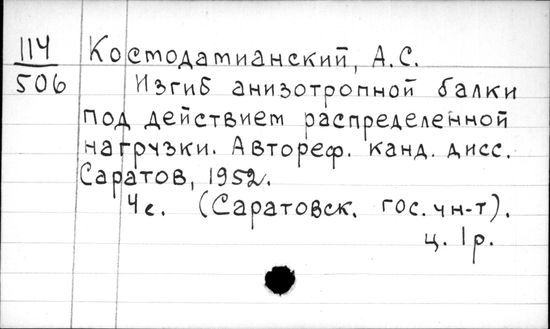 114
506
Космодамианский, А.С.
Изгиб анизотропной балки
под действием распределенной
нагрузки. Автореф. канд. дисс.
Саратов, 1952.
4 с. (Саратовск. гос. ун-т).
ц. 1 р.